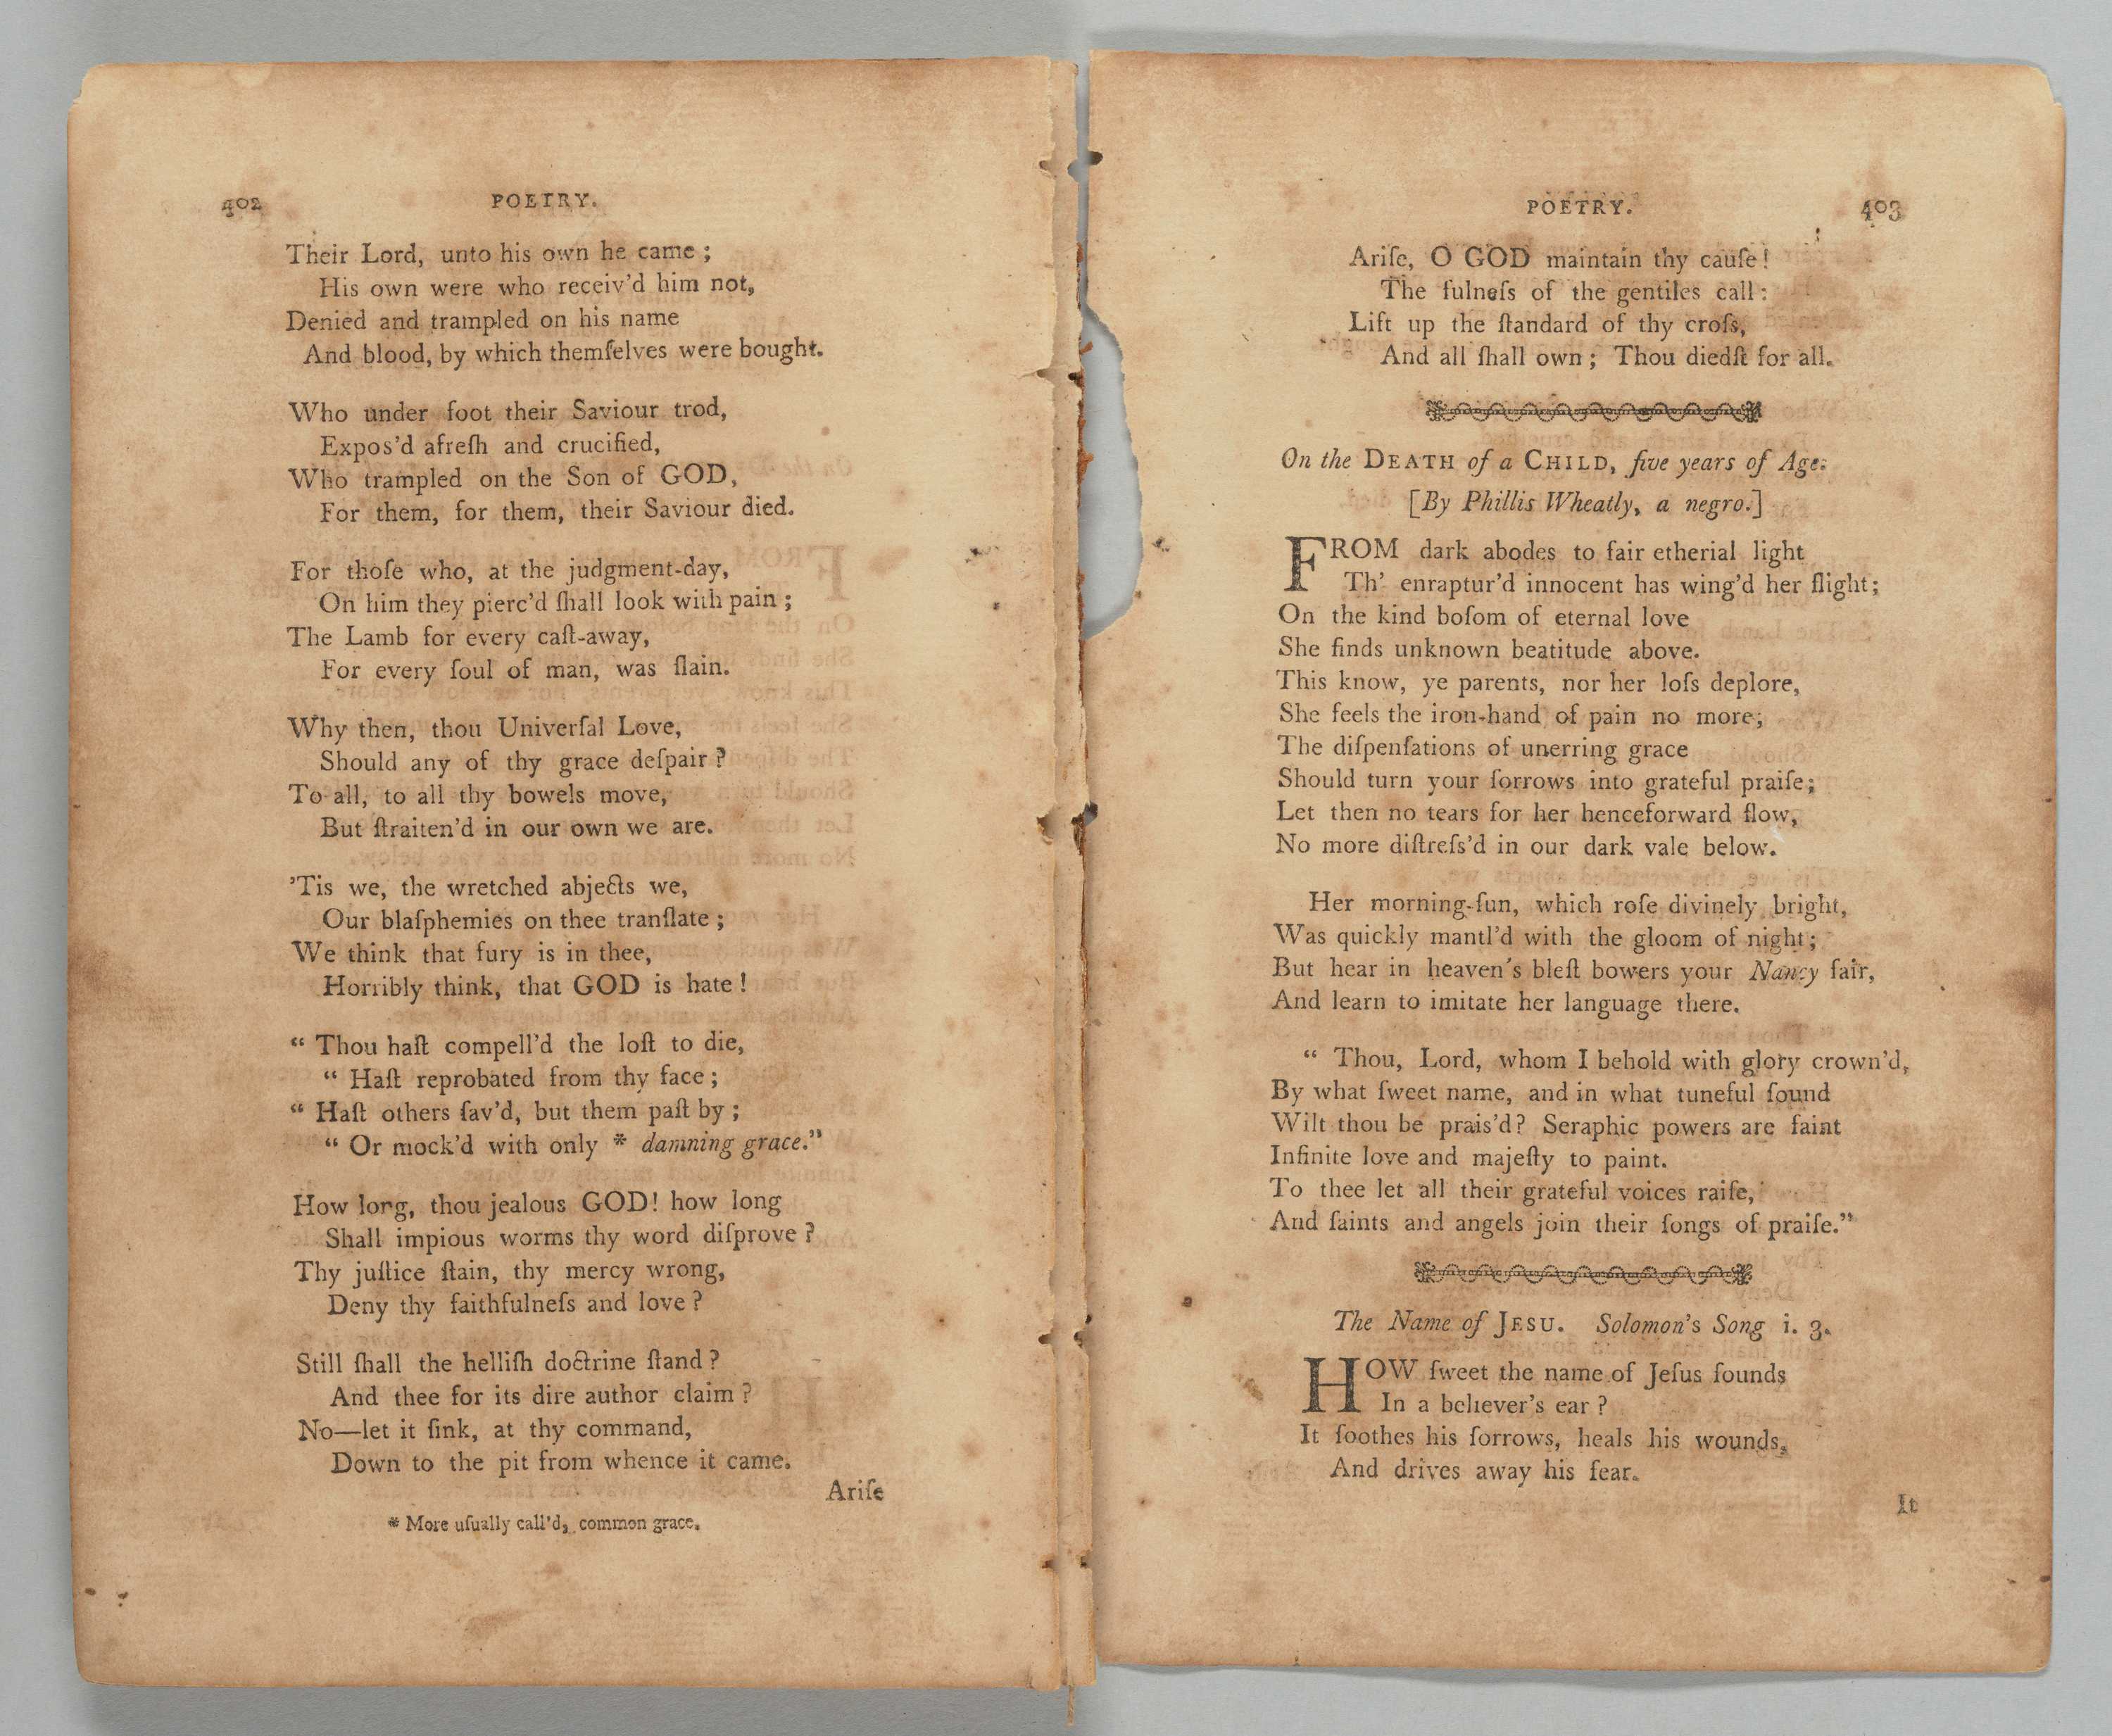 402
POETRY.
Their Lord, unto his own he came ;
His own were who receiv'd him not,
Denied and trampled on his name
And blood, by which themſelves were bought.
Who under foot their Saviour trod,
Expos'd afreſh and crucified,
Who trampled on the Son of GOD,
For them, for them, their Saviour died.
For thoſe who, at the judgment-day,
On him they pierc'd ſhall look with pain ;
The Lamb for every caſt-away,
For every ſoul of man, was ſlain.
Why then, thou Univerſal Love,
Should any of thy grace deſpair ?
To all, to all thy bowels move,
But ſtraiten'd in our own we are.
'Tis we, the wretched abjects we,
Our blaſphemies on thee tranſlate ;
We think that fury is in thee,
Horribly think, that GOD is hate !
“ Thou haſt compell'd the loſt to die,
“ Haſt reprobated from thy face ;
“ Haſt others ſav'd, but them paſt by ;
“ Or mock'd with only * damning grace.”
How long, thou jealous GOD! how long
Shall impious worms thy word diſprove ?
Thy juſtice ſtain, thy mercy wrong,
Deny thy faithfulneſs and love ?
Still ſhall the helliſh doctrine ſtand ?
And thee for its dire author claim ?
No—let it ſink, at thy command,
Down to the pit from whence it came.
Ariſe
* More uſually call'd, common grace.
POETRY.
403
Ariſe, O GOD maintain thy cauſe !
The fulneſs of the gentiles call :
Lift up the ſtandard of thy croſs,
And all ſhall own ; Thou diedſt for all.
On the DEATH of a CHILD, five years of Age.
[By Phillis Wheatly, a negro.]
FROM dark abodes to fair etherial light
Th' enraptur'd innocent has wing'd her flight;
On the kind boſom of eternal love
She finds unknown beatitude above.
This know, ye parents, nor her loſs deplore,
She feels the iron-hand of pain no more;
The diſpenſations of unerring grace
Should turn your ſorrows into grateful praiſe;
Let then no tears for her henceforward flow,
No more diſtreſs'd in our dark vale below.
Her morning-ſun, which roſe divinely bright,
Was quickly mantl'd with the gloom of night;
But hear in heaven's bleſt bowers your Nancy fair,
And learn to imitate her language there.
“ Thou, Lord, whom I behold with glory crown'd,
By what ſweet name, and in what tuneful ſound
Wilt thou be prais'd? Seraphic powers are faint
Infinite love and majeſty to paint.
To thee let all their grateful voices raiſe,
And ſaints and angels join their ſongs of praiſe.”
The Name of JESU. Solomon's Song i. 3.
HOW ſweet the name of Jeſus ſounds
In a believer's ear ?
It ſoothes his ſorrows, heals his wounds,
And drives away his fear.
It